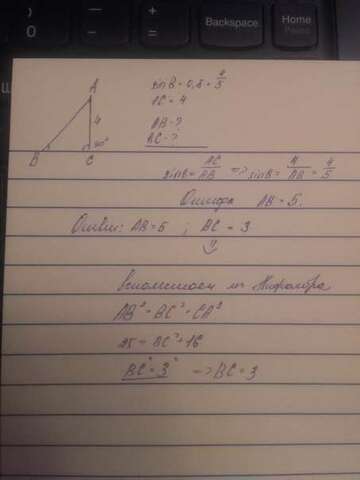 )
0
-
+
=
Backspace
Home
Pause
A
4
B
C
90°
sin B = 0,8 = 4/5
AC = 4
AB - ?
BC - ?
sin B = AC/AB => sin B = 4/AB = 4/5
Откуда AB = 5.
Ответ: AB = 5 ; BC = 3
⇓
Вспоминаем т. Пифагора
AB² = BC² + CA²
25 = BC² + 16
BC² = 3² => BC = 3